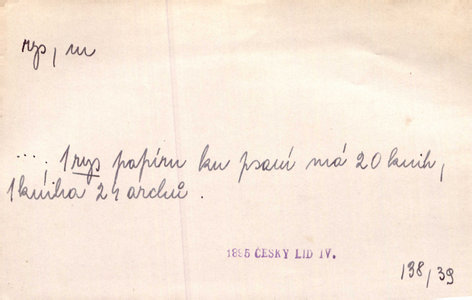 rys, m
.... 1 rys papíru ku psaní má 20 knih,
1 kniha 24 archů.
1895 ČESKÝ LID IV.
138, 39